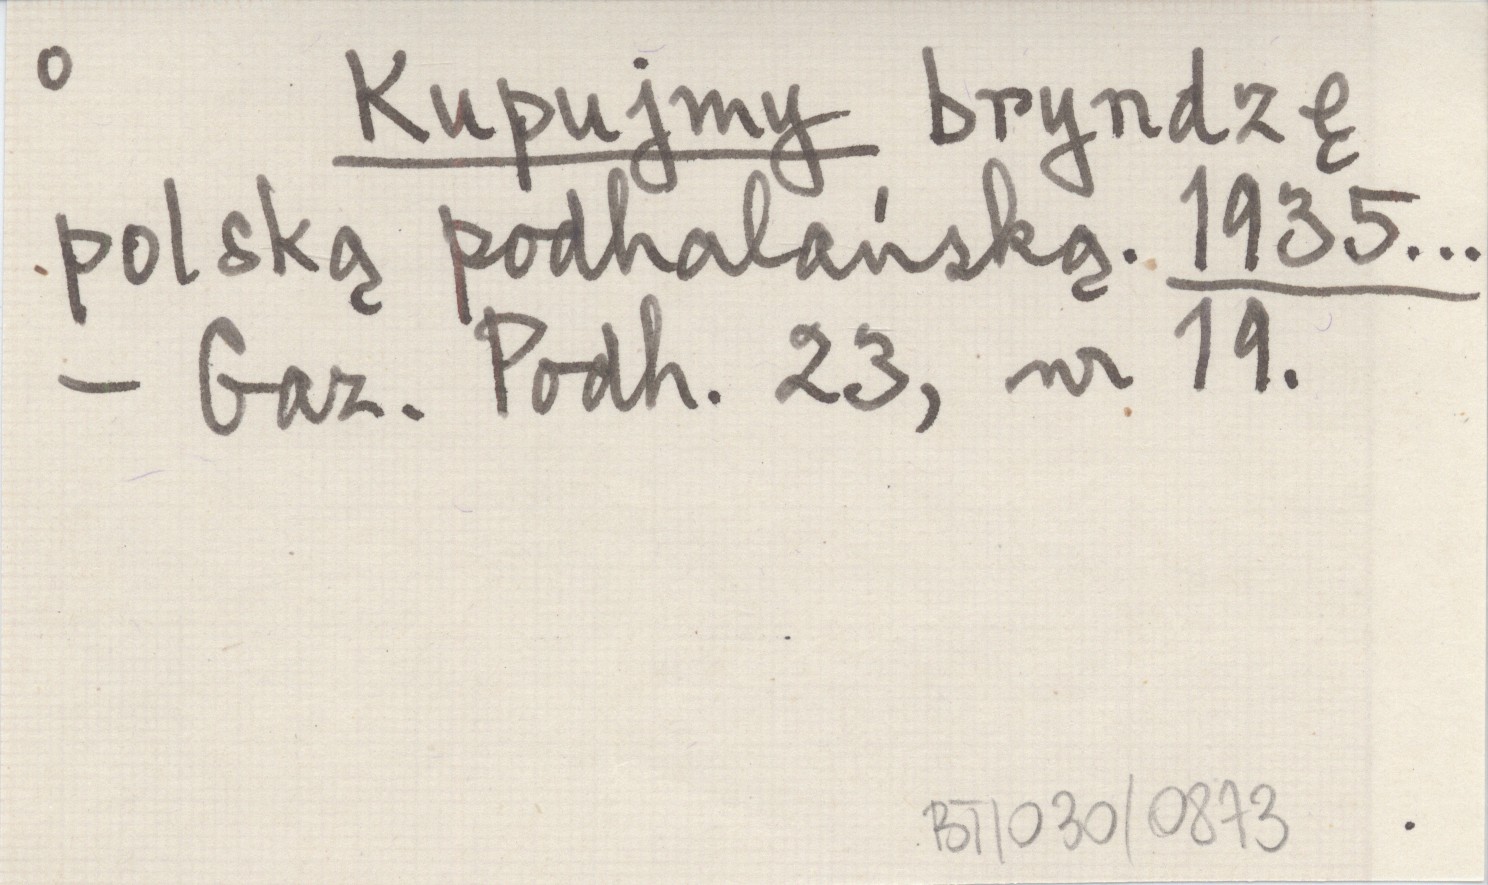 o Kupujmy bryndzę
polską podhalańską. 1935...
– Gaz. Podh. 23, nr 19.
BT/030/0873